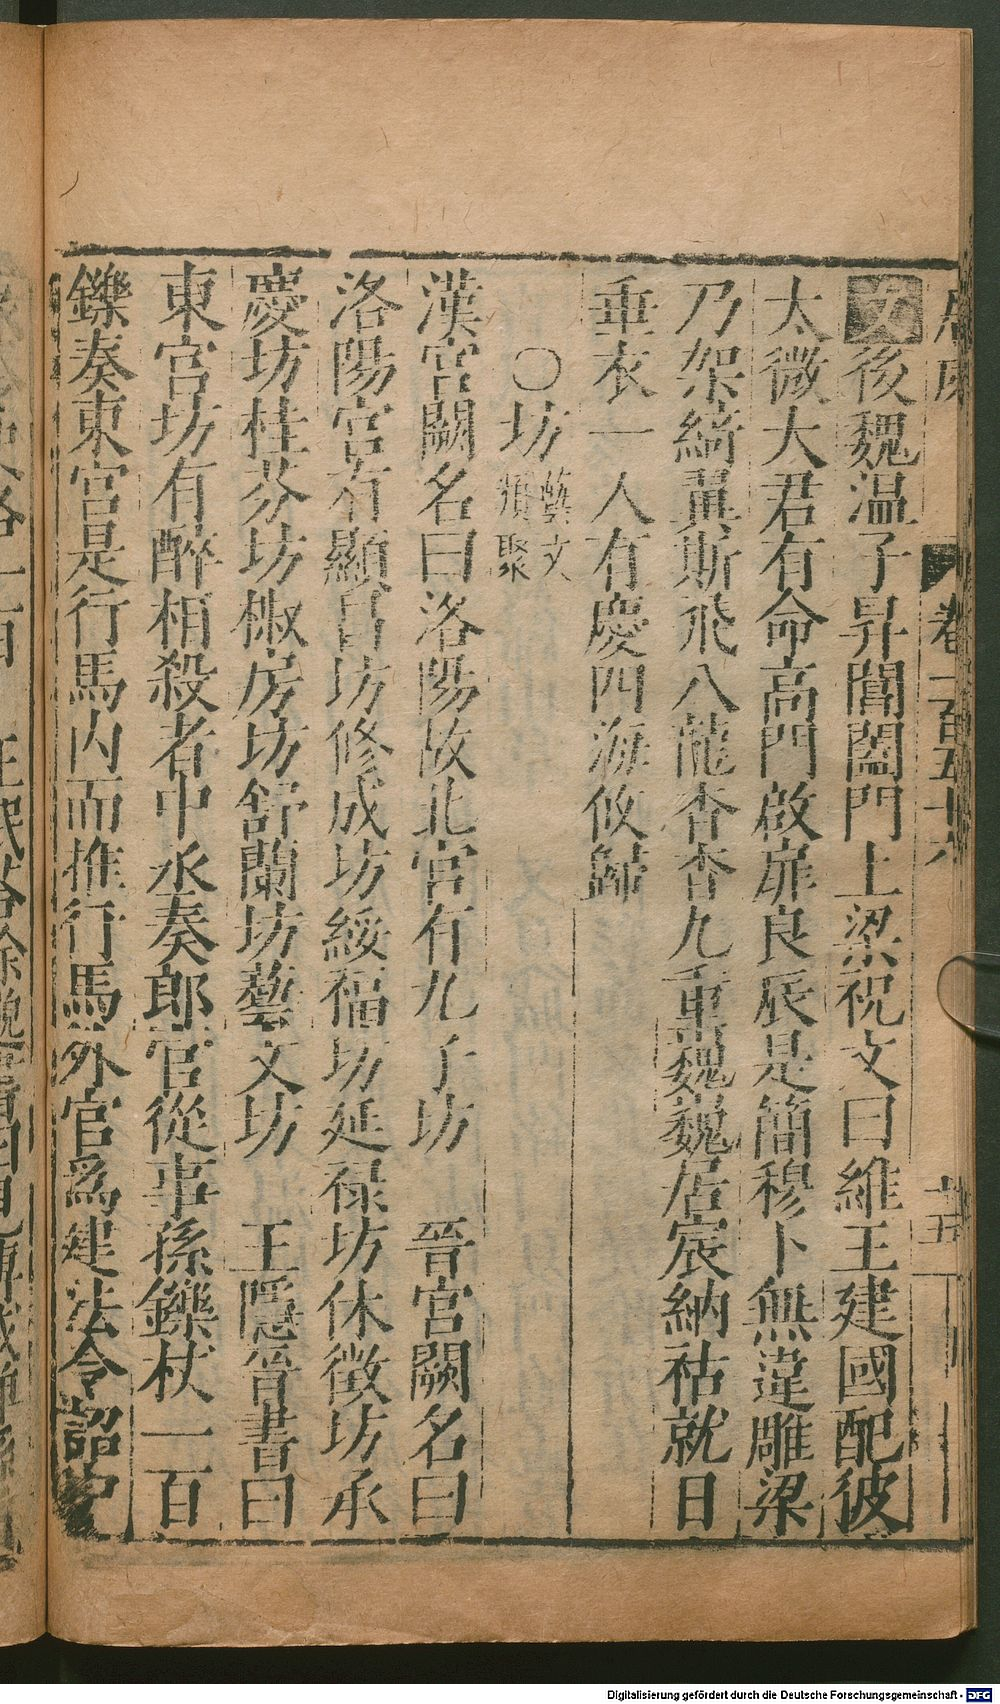 卷一百五十六
十五
文後魏温子昇閶闔門上梁祝文曰維王建國配彼
太微大君有命高門啟扉良辰是簡穆卜無違雕梁
乃架綺翼斯飛八龍杳杳九重巍巍居宸納祜就日
垂衣一人有慶四海攸歸
○坊藝文類聚
漢宮闕名曰洛陽故北宮有九子坊 晉宮闕名曰
洛陽宮有顯昌坊修成坊綏福坊延禄坊休徴坊承
慶坊桂芬坊椒房坊舒蘭坊藝文坊 王隱晉書曰
東宮坊有醉相殺者中丞奏郎官從事孫鑠杖一百
鑠奏東宮是行馬内而推行馬外官爲建法令詔史
Digitalisierung gefördert durch die Deutsche Forschungsgemeinschaft - DFG